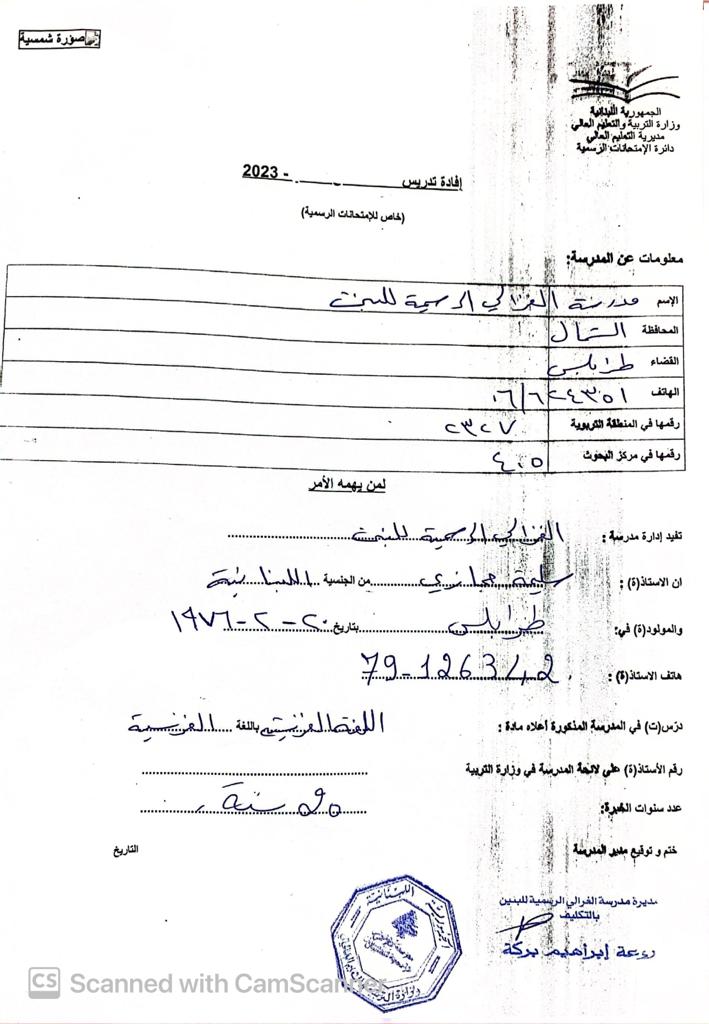 صورة شمسية
الجمهورية اللبنانية
وزارة التربية والتعليم العالي
مديرية التعليم العالي
دائرة الإمتحانات الرسمية
إفادة تدريس ــــــــ - 2023
(خاص للإمتحانات الرسمية)
معلومات عن المدرسة:
الإسم مدرسة الغزالي الرسمية للبنين
المحافظة الشمال
القضاء طرابلس
الهاتف ٠٦/٦٢٤٣٥١
رقمها في المنطقة التربوية ٢٣٢٧
رقمها في مركز البحوث ٤٠٥
لمن يهمه الأمر
تفيد إدارة مدرسة : الغزالي الرسمية للبنين
ان الاستاذ(ة) : سليمة حجازي من الجنسية اللبنانية
والمولود(ة) في: طرابلس بتاريخ ٢٠-٢-١٩٧٦
هاتف الاستاذ(ة) : 79-126342
درّس(ت) في المدرسة المذكورة أعلاه مادة : اللغة الفرنسية باللغة الفرنسية
رقم الأستاذ(ة) على لائحة المدرسة في وزارة التربية
عدد سنوات الخبرة: سنة
ختم و توقيع مدير المدرسة التاريخ
مديرة مدرسة الغزالي الرسمية للبنين
بالتكليف
إبراهيم بركة
CS Scanned with CamScanner